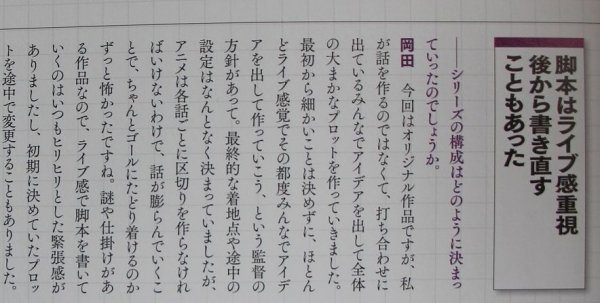 脚本はライブ感重視
後から書き直す
こともあった
――シリーズの構成はどのように決まっ
ていったのでしょうか。
岡田　今回はオリジナル作品ですが、私
が話を作るのではなくて、打ち合わせに
出ているみんなでアイデアを出して全体
の大まかなプロットを作っていきました。
最初から細かいことは決めずに、ほとん
どライブ感覚でその都度みんなでアイデ
アを出して作っていこう、という監督の
方針があって。最終的な着地点や途中の
設定はなんとなく決まっていましたが、
アニメは各話ごとに区切りを作らなけれ
ばいけないわけで、話が膨らんでいくこ
とで、ちゃんとゴールにたどり着けるのか
ずっと怖かったですね。謎や仕掛けがあ
る作品なので、ライブ感で脚本を書いて
いくのはいつもヒリヒリとした緊張感が
ありましたし、初期に決めていたプロッ
トを途中で変更することもありました。